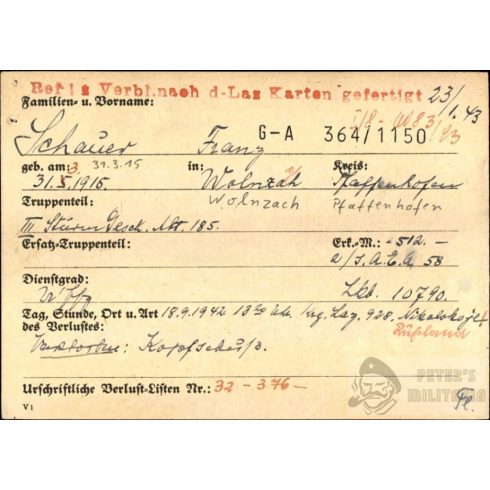 Ref I 2 Verbl.nach d-Laz Karten gefertigt 23/1.43
Familien- u. Vorname:
G-A 364/1150
Schauer Franz
geb. am: 31.3.15 in: Kreis:
31.5.1915. Wolnzach Pfaffenhofen
Wolnzach Pfaffenhofen
Truppenteil:
III Sturm Gesch. Abt. 185.
Ersatz-Truppenteil: Erk.-M.: -512.-
58
Dienstgrad:
Uffz 10790.
Tag, Stunde, Ort u. Art 18.9.1942 13 Uhr 928,
des Verlustes: Rußland
Kopfschuß
Urschriftliche Verlust-Listen Nr.: 32 - 376 -
V 1
PETER'S
MILITARIA